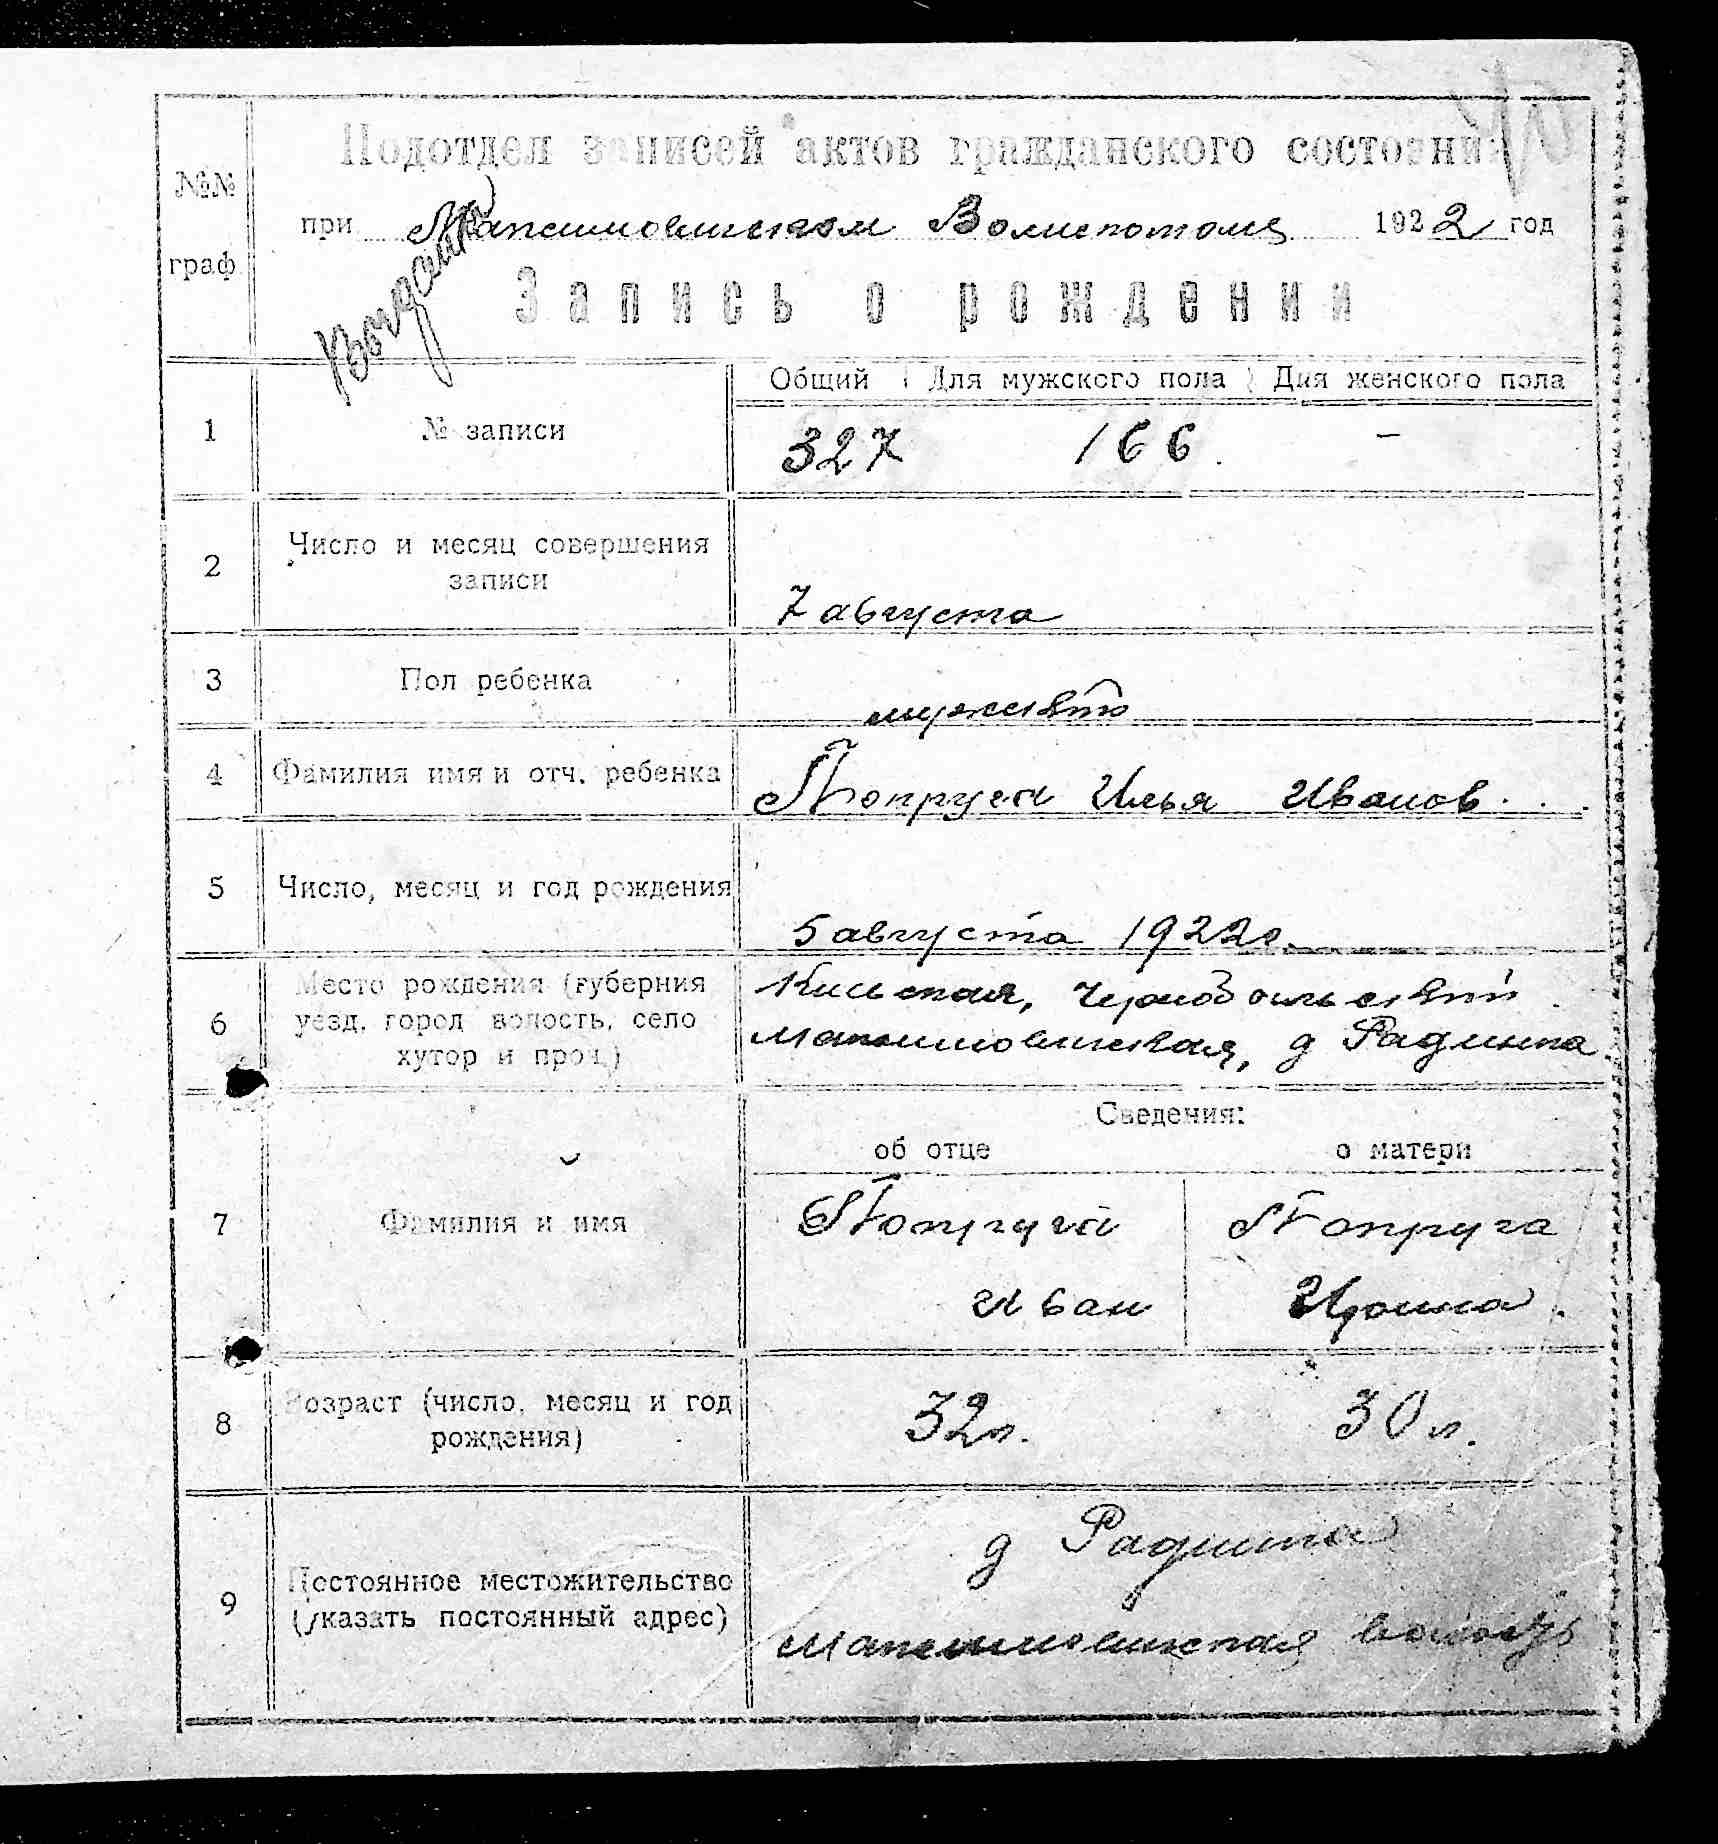 №№ граф.
Подотдел записей актов гражданского состояния
при Максимовичском Волисполкоме 1922 год
Запись о рождении
Общий Для мужского пола Для женского пола
1 № записи 327 166. –
2 Число и месяц совершения
записи
7 августа
3 Пол ребенка
4 Фамилия имя и отч. ребенка Попруга Илья Иванов...
5 Число, месяц и год рождения
5 августа 1922 г.
Место рождения (губерния Киевская, Чернобыльский
6 уезд, город волость, село Максимовичская, д Радинка
хутор и проч.)
Сведения:
об отце о матери
7 Фамилия и имя Попруга Попруга
Иван
8 Возраст (число, месяц и год 32 л. 30 л.
рождения)
д Радинка
9 Постоянное местожительство
(указать постоянный адрес)
Максимовичская